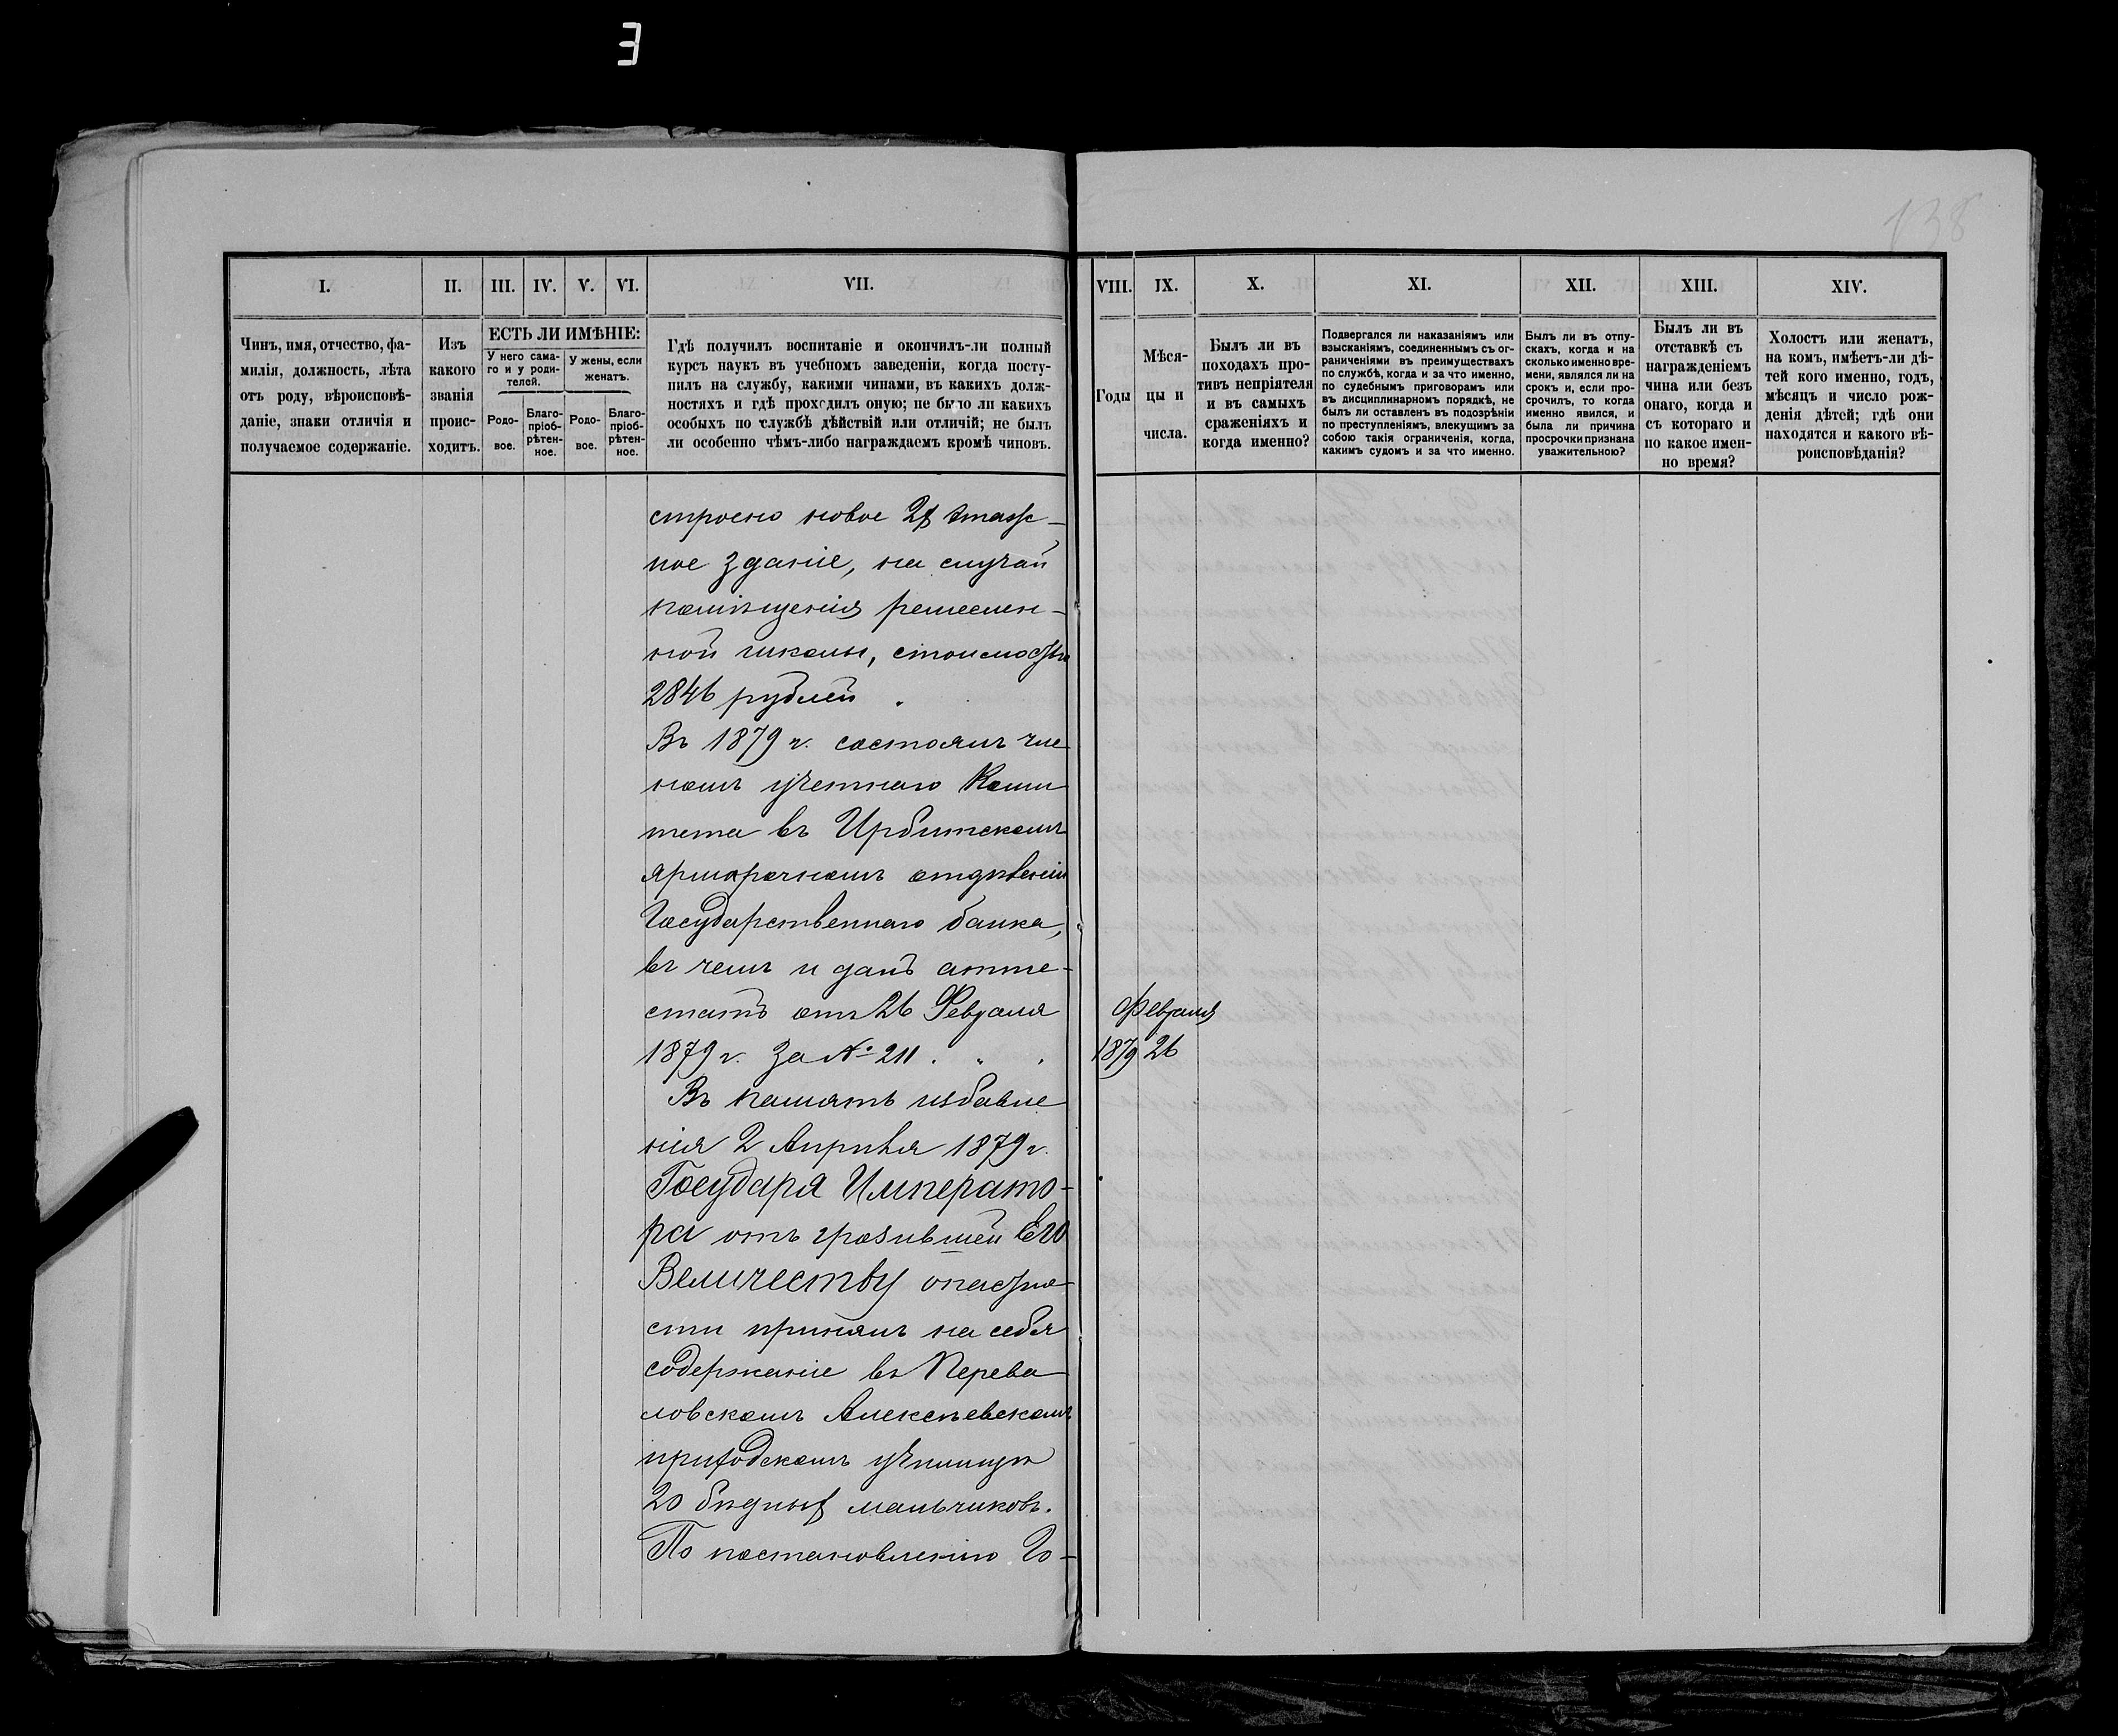 138
I.
II.
III.
IV.
V.
VI.
VII.
VIII.
IX.
X.
XI.
XII.
XIII.
XIV.
Чинъ, имя, отчество, фа-
милія, должность, лѣта
отъ роду, вѣроисповѣ-
даніе, знаки отличія и
получаемое содержаніе.
Изъ
какого
званія
проис-
ходитъ.
ЕСТЬ ЛИ ИМѢНІЕ:
У него сама-
го и у роди-
телей.
У жены, если
женатъ.
Родо-
вое.
Благо-
пріоб-
рѣтен-
ное.
Родо-
вое.
Благо-
пріоб-
рѣтен-
ное.
Гдѣ получилъ воспитаніе и окончилъ-ли полный
курсъ наукъ въ учебномъ заведеніи, когда посту-
пилъ на службу, какими чинами, въ какихъ долж-
ностяхъ и гдѣ проходилъ оную; не было ли какихъ
особыхъ по службѣ дѣйствій или отличій; не былъ
ли особенно чѣмъ-либо награждаемъ кромѣ чиновъ.
Годы
Мѣся-
цы и
числа.
Былъ ли въ
походахъ про-
тивъ непріятеля
и въ самыхъ
сраженіяхъ и
когда именно?
Подвергался ли наказаніямъ или
взысканіямъ, соединеннымъ съ ог-
раниченіями въ преимуществахъ
по службѣ, когда и за что именно,
по судебнымъ приговорамъ или
въ дисциплинарномъ порядкѣ, не
былъ ли оставленъ въ подозрѣніи
по преступленіямъ, влекущимъ за
собою такія ограниченія, когда,
какимъ судомъ и за что именно.
Былъ ли въ отпу-
скахъ, когда и на
сколько именно вре-
мени, являлся ли на
срокъ и, если про-
срочилъ, то когда
именно явился, и
была ли причина
просрочки признана
уважительною?
Былъ ли въ
отставкѣ съ
награжденіемъ
чина или безъ
онаго, когда и
съ котораго и
по какое имен-
но время?
Холостъ или женатъ,
на комъ, имѣетъ-ли дѣ-
тей кого именно, годъ,
мѣсяцъ и число рож-
денія дѣтей; гдѣ они
находятся и какого вѣ-
роисповѣданія?
строено новое 2х этаж-
ное зданіе, на случай
помѣщенія ремеслен-
ной школы, стоимостью
2846 рублей .
Въ 1879 г. состоялъ чле
номъ учетнаго Коми
тета въ Ирбитскомъ
ярморочномъ отдѣленіи
Государственнаго банка,
въ чемъ и данъ атте-
статъ отъ 26 Февраля
1879 г. за № 211 . " .
Въ память избавле
нія 2 Апрѣля 1879 г.
Государя Императо-
ра отъ грозившей Его
Величеству опасно-
сти принялъ на себя
содержаніе въ Перева
ловскомъ Алексѣевскомъ
приходскомъ училищѣ
20 бѣдныхъ мальчиковъ.
По постановленію Го-
Февраля
1879 26